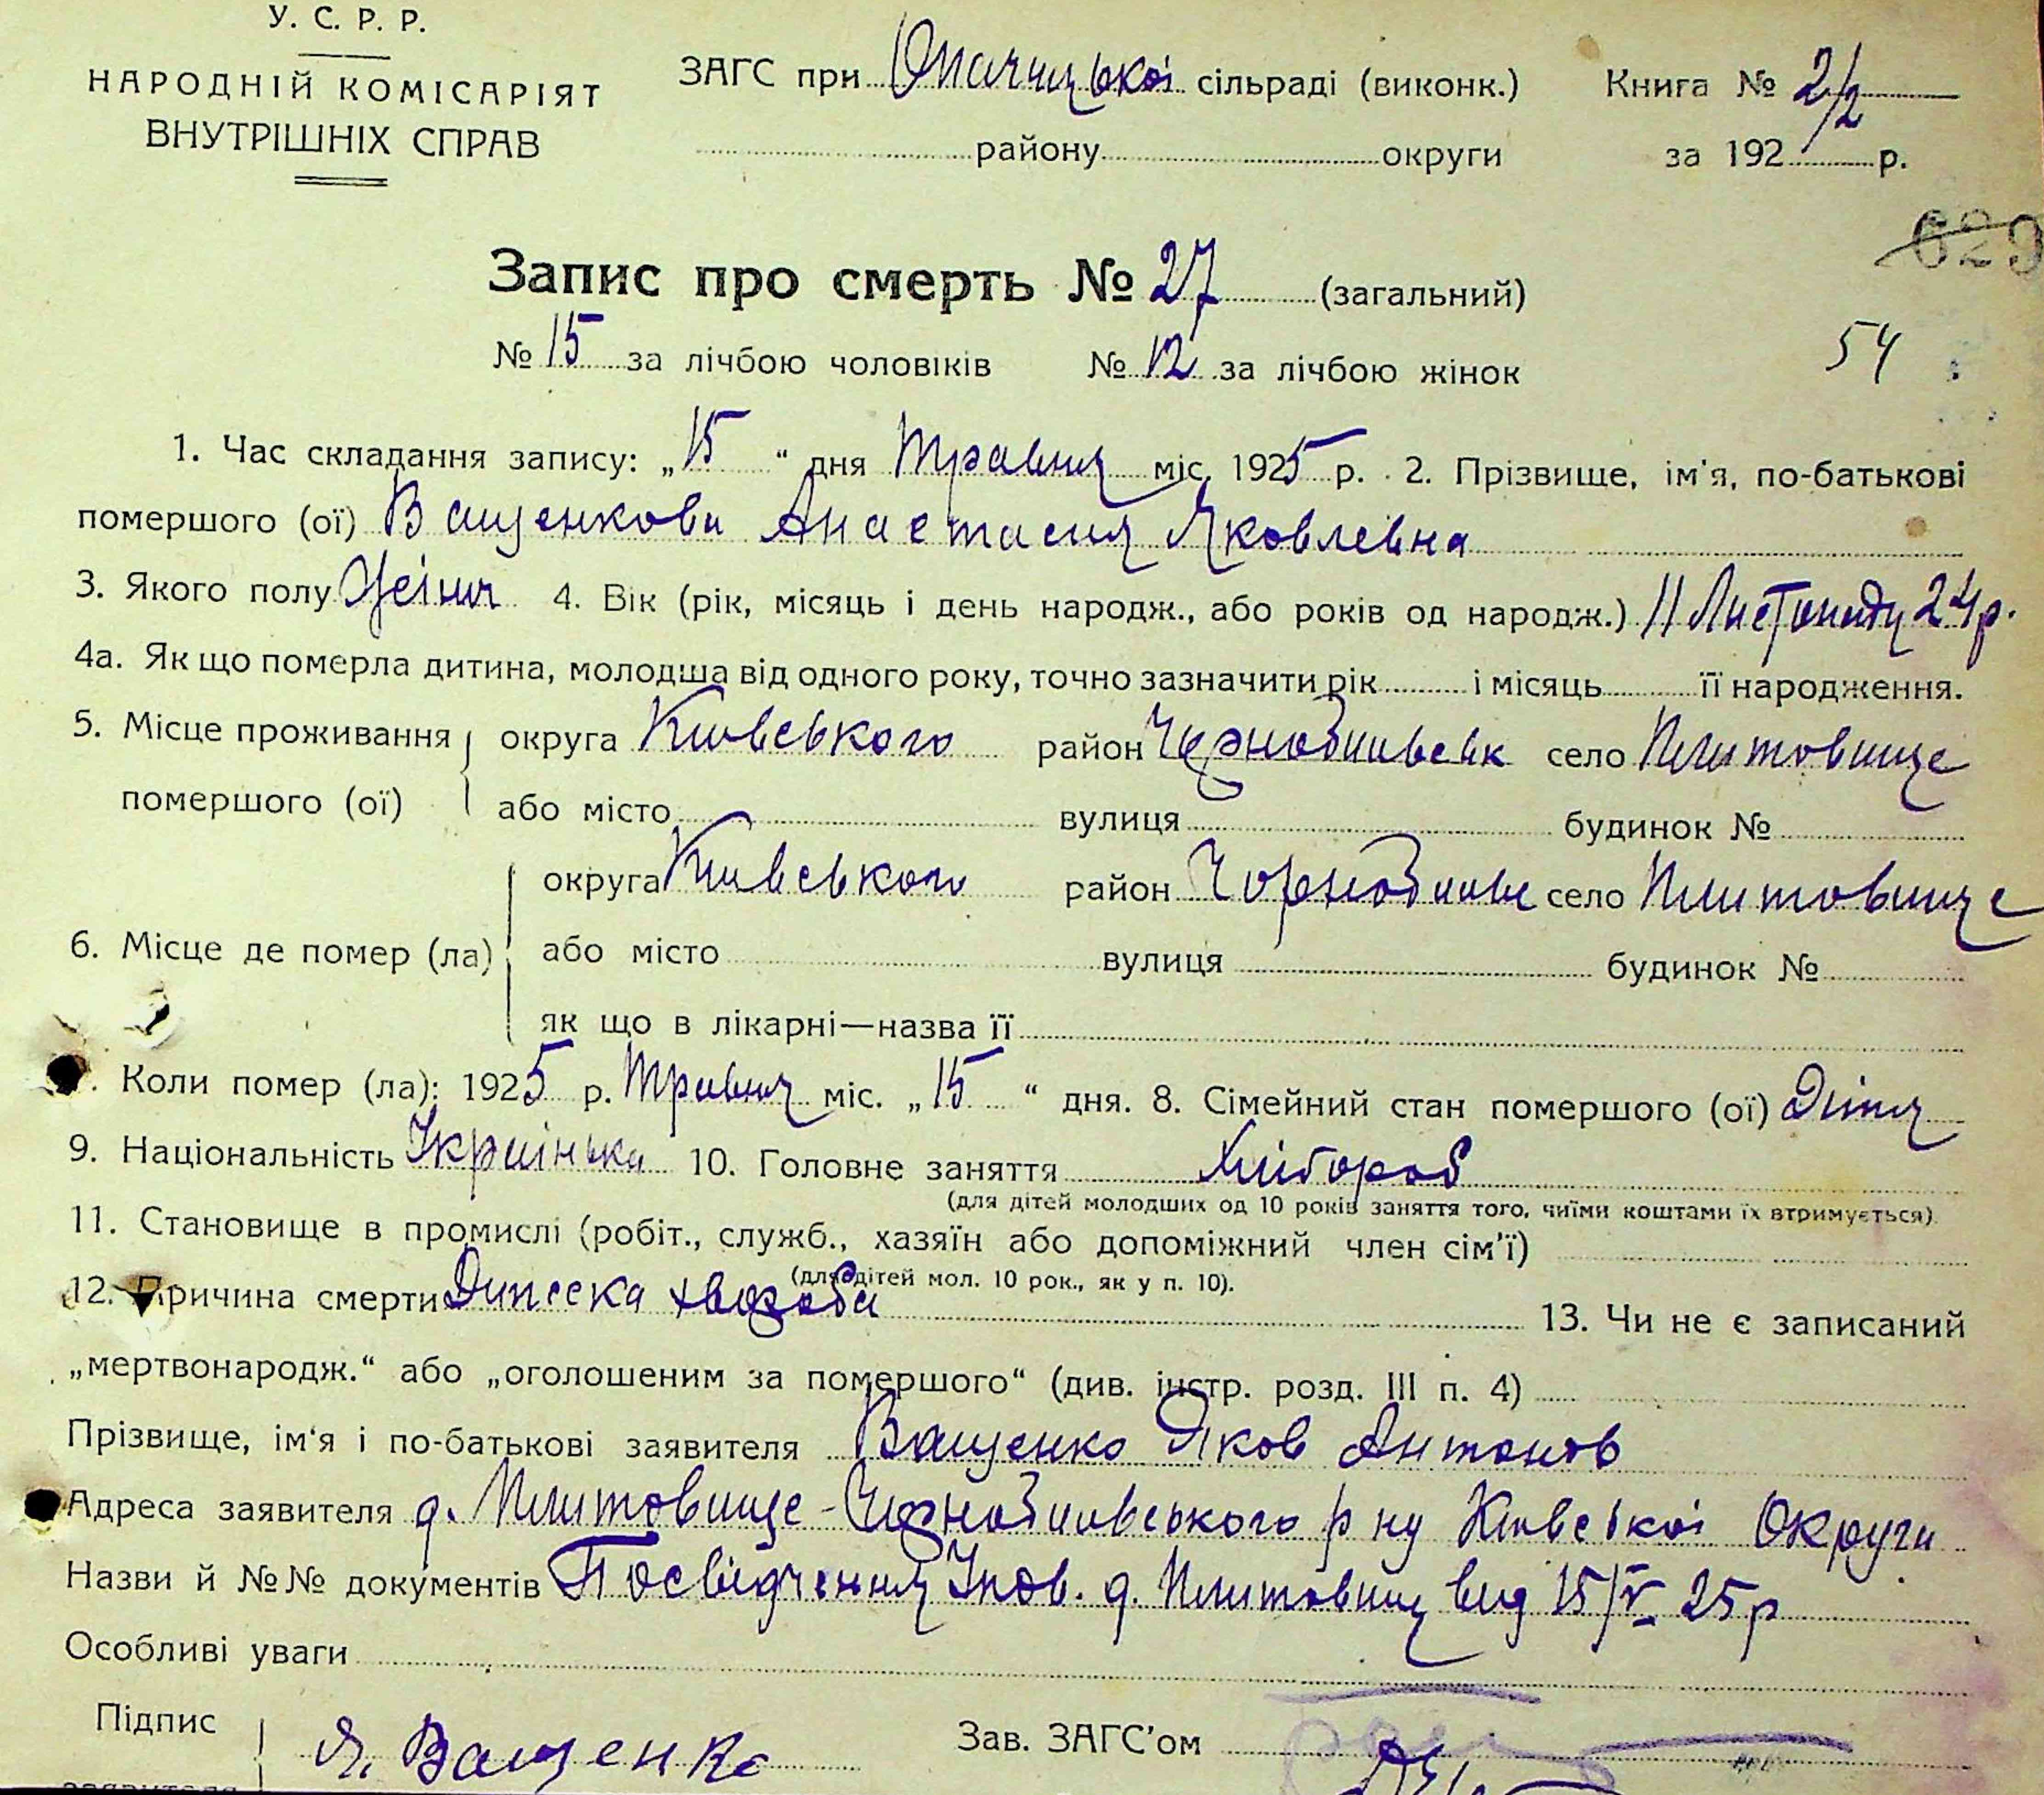 У. С. Р. Р.
НАРОДНІЙ КОМІСАРІЯТ
ВНУТРІШНІХ СПРАВ
ЗАГС при Опачицької сільраді (виконк.)
району округи
Книга № 2/2
за 192 р.
629
Запис про смерть № 27 (загальний)
№ 15 за лічбою чоловіків № 12 за лічбою жінок
54
1. Час складання запису: „15“ дня Травня міс. 1925 р. 2. Прізвище, ім'я, по-батькові
помершого (ої) Ващенкова Анастасия Яковлевна
3. Якого полу 4. Вік (рік, місяць і день народж., або років од народж.) 11 Листопаду 24 р.
4а. Як що померла дитина, молодша від одного року, точно зазначити рік і місяць її народження.
5. Місце проживання округа Київського район Чорнобильськ село Плитовище
помершого (ої) або місто вулиця будинок №
округа Київського район село Плитовище
6. Місце де помер (ла) або місто вулиця будинок №
як що в лікарні—назва її
7. Коли помер (ла): 1925 р. Травня міс. „15“ дня. 8. Сімейний стан помершого (ої) Дітя
9. Національність Українька 10. Головне заняття Хлібороб
(для дітей молодших од 10 років заняття того, чиїми коштами їх втримується).
11. Становище в промислі (робіт., служб., хазяїн або допоміжний член сім'ї)
(для дітей мол. 10 рок., як у п. 10).
12. Причина смерти хвороба 13. Чи не є записаний
„мертвонародж.“ або „оголошеним за помершого“ (див. інстр. розд. III п. 4)
Прізвище, ім'я і по-батькові заявителя Ващенко Яков Антонов
Адреса заявителя д. Плитовище - Чорнобильського р ну Київської Округи
Назви й №№ документів Посвідчення Упов. д. Плитовищ від 15/V 25 р
Особливі уваги
Підпис Я. Ващенко Зав. ЗАГС'ом
заявителя